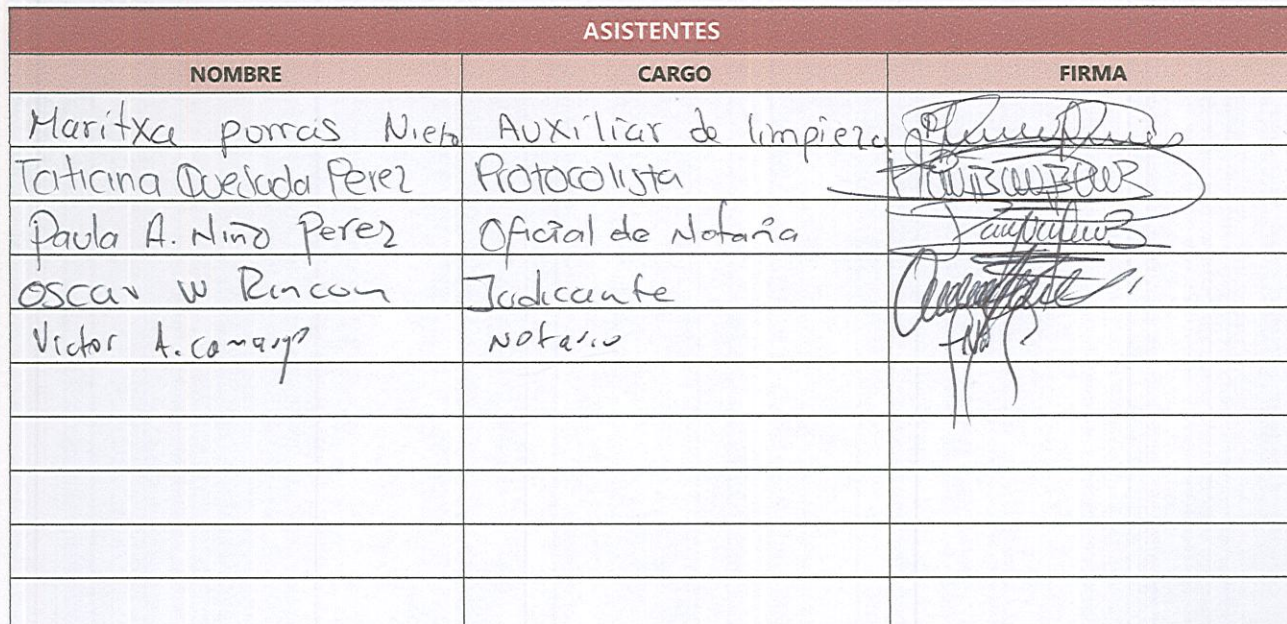 ASISTENTES
NOMBRE CARGO FIRMA
Maritxa porras Nieto Auxiliar de limpieza
Taticina Quejada Perez Protocolista
Paula A. Niño Perez Oficial de Notaría
oscar W Rincon Judicante
Victor A. camargo Notario